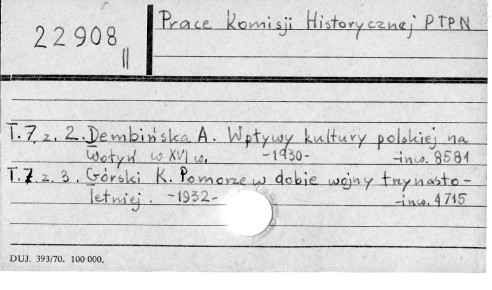 22908
II
Prace Komisji Historycznej PTPN
T.7. z. 2. Dembińska A. Wpływy kultury polskiej na
Wołyń w XVI w. -1930- -inw. 8581
T.7. z. 3. Górski K. Pomorze w dobie wojny trzynasto-
letniej. -1932- -inw. 4715
DUJ. 393/70. 100 000.